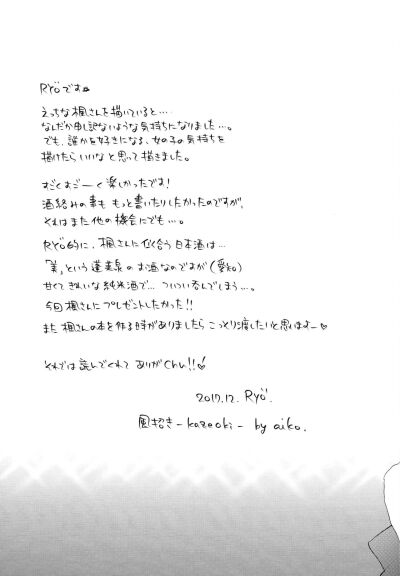 Ryöです☆
えっちな楓さんを描いていると‥‥
なんだか申し訳ないような気持ちになりました‥‥。
でも、誰かを好きになる、女の子の気持ちを
描けたらいいなと思って描きました。
すごくすごーく楽しかったです!
酒絡みの事も もっと書いたりしたかったのですが、
それはまた他の機会にでも‥‥。
Ryö的に、楓さんに似合う日本酒は‥‥
「美」という蓬莱泉のお酒なのですが(愛知)
甘くてきれいな純米酒で‥‥ついつい呑んでしまう‥‥。
今回楓さんにプレゼントしたかった!!
また楓さんの本を作る時がありましたら こっそり渡したいと思いまよー♡
それでは読んでくれて ありがChu!!♡
2017.12. Ryö.
風招き-kazeoki- by aiko.